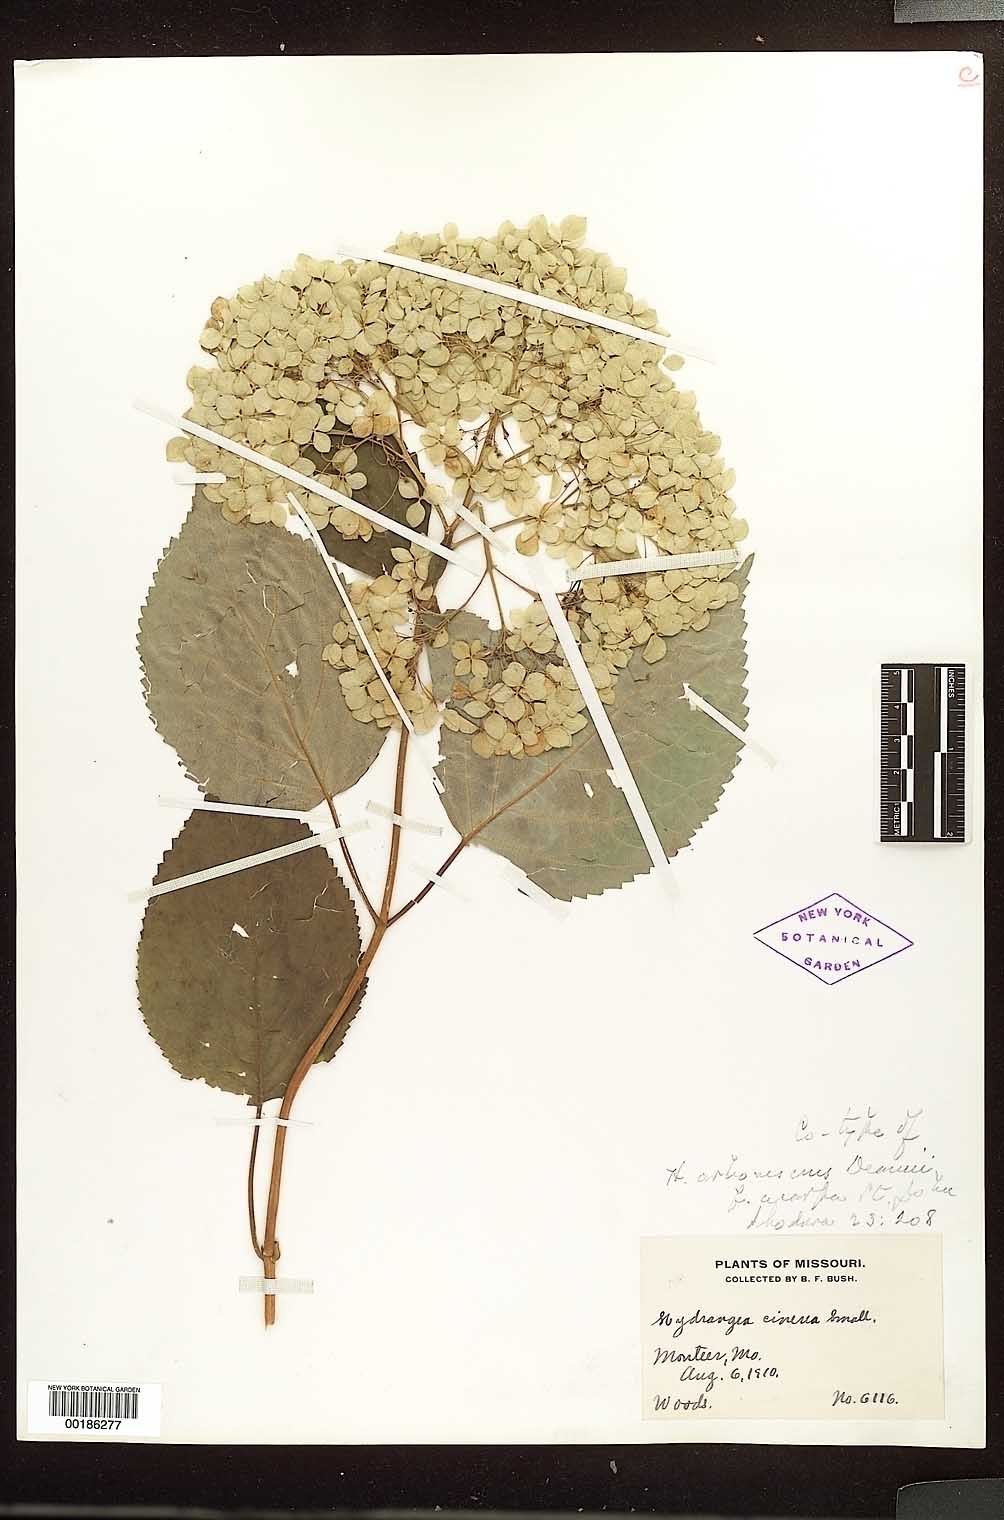 C
CM
METRIC 1 2 3 4 5
INCHES
2
NEW YORK
BOTANICAL
GARDEN
Co-type of
H. arborescens Deamii
f. acarpa St. John
Rhodora 23: 208
PLANTS OF MISSOURI.
COLLECTED BY B. F. BUSH.
Hydrangea cinerea Small.
Monteer, Mo.
Aug. 6, 1910.
Woods.
No. 6116.
NEW YORK BOTANICAL GARDEN
00186277